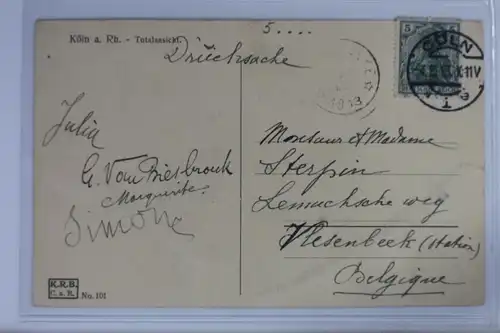 5....
Köln a. Rh. - Totalansicht.
Drücksache
5
CÖLN
X.11V
1
1913
Julia
G. Van Driesbrouck
Marguerite.
Simone
Monsieur et Madame
Sterpin
Lemuchsche weg
Vlesenbeek (Station)
Belgique
K.R.B.
C. a. R.
No. 101